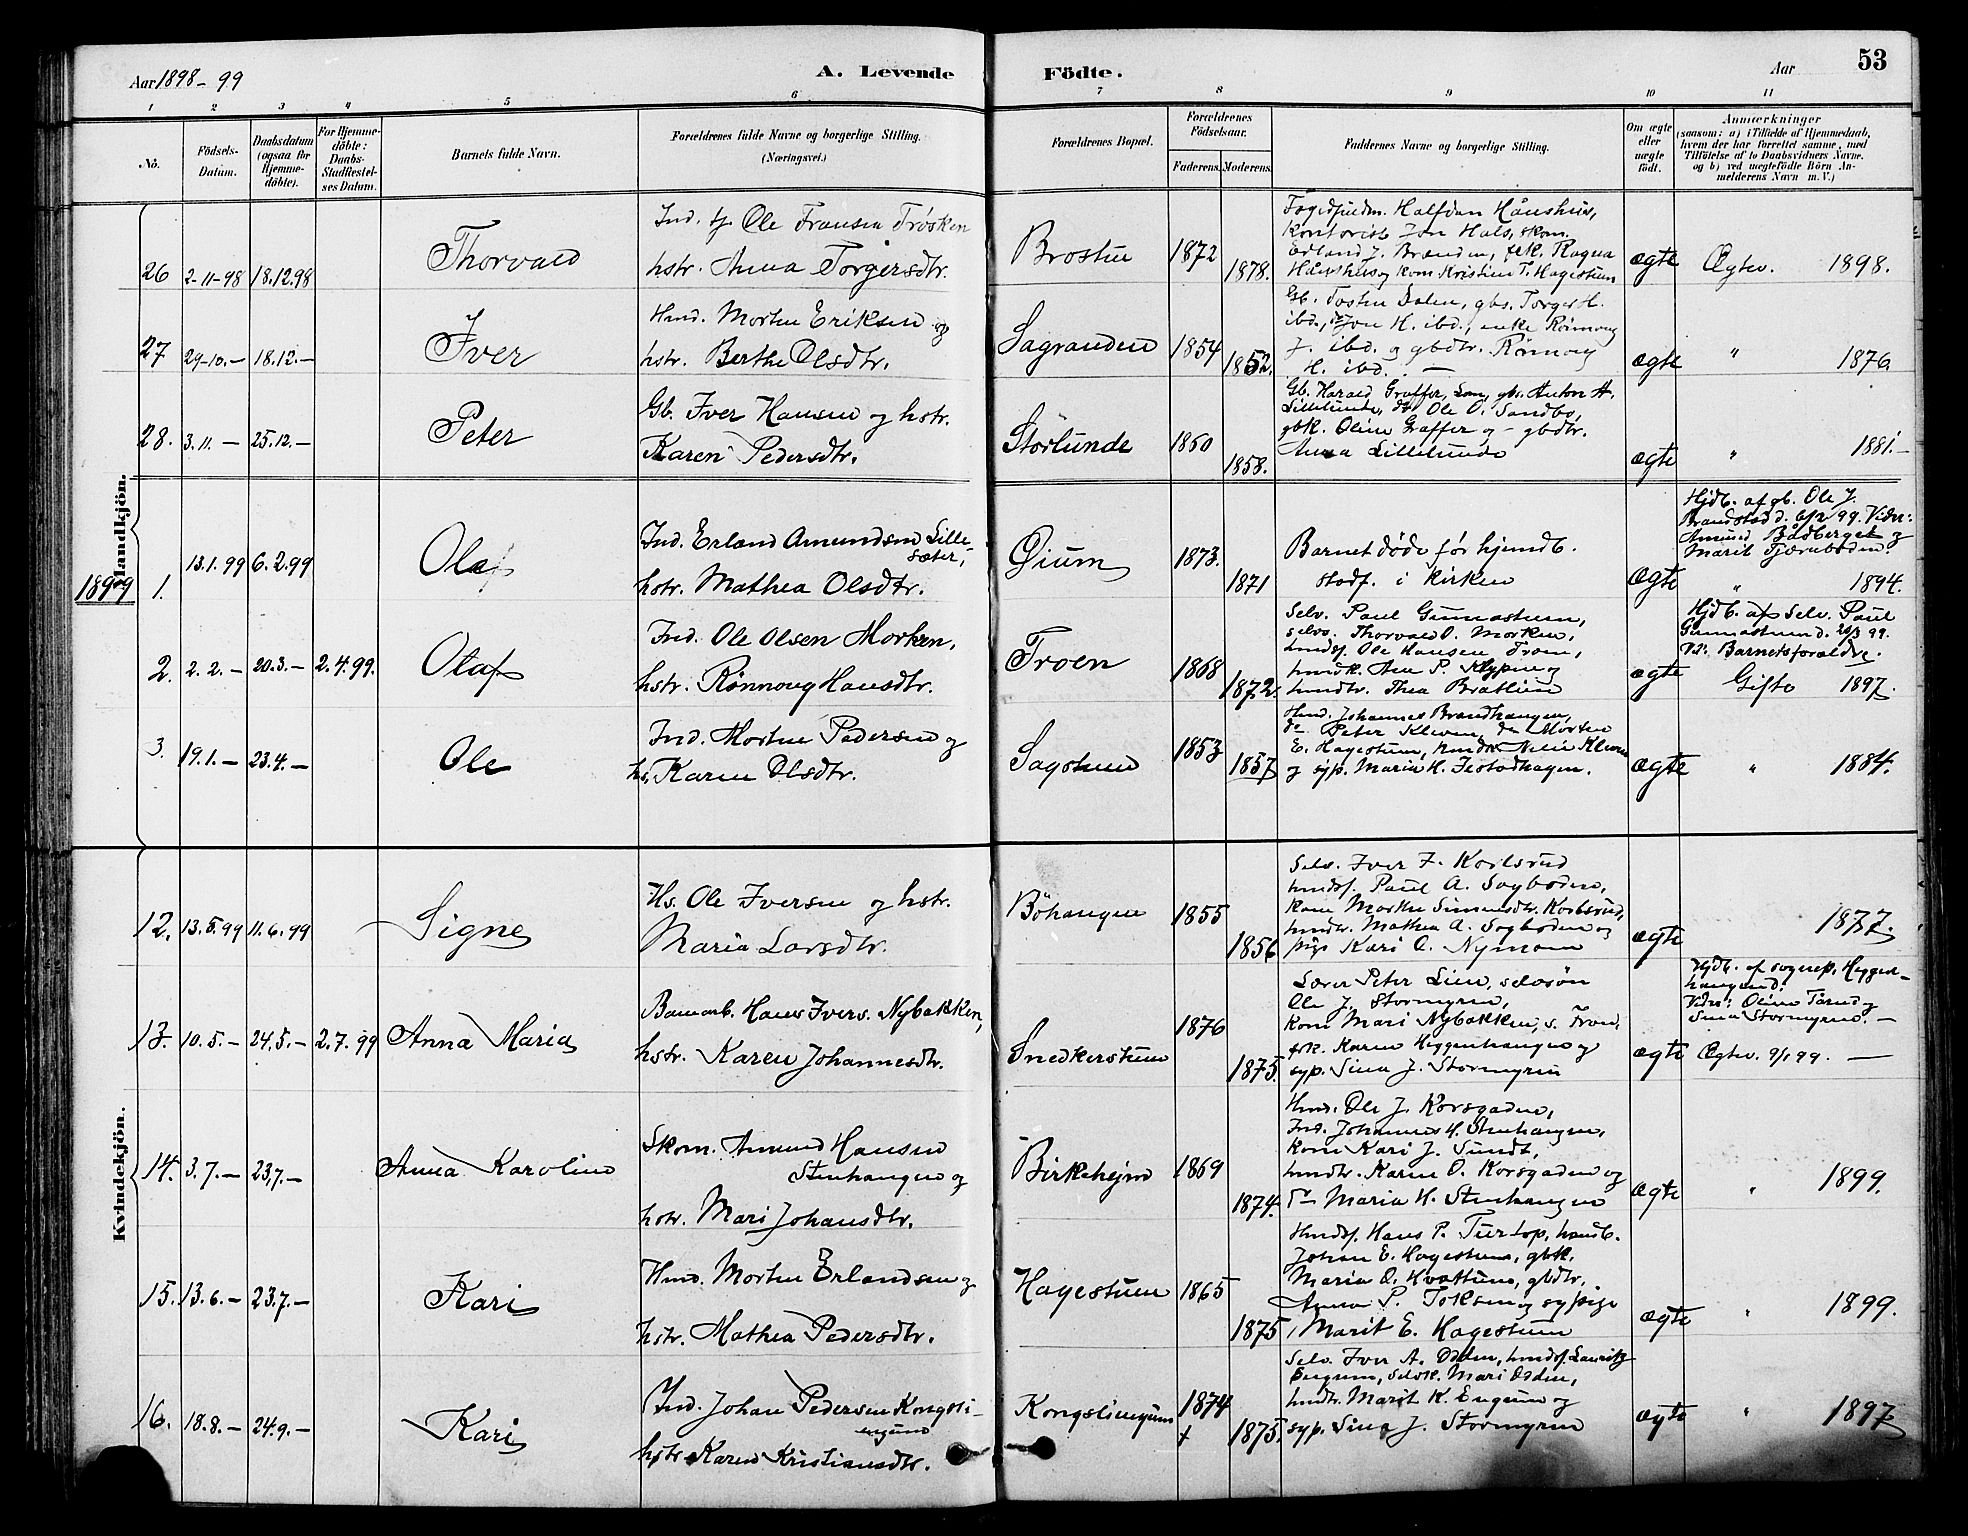 Aar 1898-99
A. Levende Födte.
Aar
53
1 2 3 4 5 6 7 8 9 10 11
No.
Födsels-Datum.
Daabsdatum (ogsaa for Hjemme-döbte).
For Hjemme-döbte: Daabs-Stadfæstel-ses Datum.
Barnets fulde Navn.
Forældrenes fulde Navne og borgerlige Stilling.
(Næringsvei.)
Forældrenes Bopæl.
Forældrenes Födselsaar.
Faderens. Moderens.
Faddernes Navne og borgerlige Stilling.
Om ægte eller uægte födt.
Anmærkninger
(saasom: a) i Tilfælde af Hjemmedaab, hvem der har forrettet samme, med Tilföielse af to Daabsvidners Navne. og b) ved uægtefödte Börn An-melderens Navn m. V.)
Mandkjön.
26 2-11-98 18.12.98 Thorvald
Ind. tj. Ole Fransen Trösken
hstr. Anna Torgersdtr.
Brostue 1872 1878.
Halfdan Hånshus,
Kontorist Jon Hals, skom.
Erland J. Brænden, frk. Ragna
kom Kristine T. Hagestuen
ægte Ægtev. 1898.
27 29-10.- 18.12.- Iver
Hmd. Morten Eriksen og
hstr. Berthe Olsdtr.
Sagranden 1854 1852.
Gb. Tosten Dalen, gbs. Torger H.
ibd., Jon H. ibd., enke Rønnoug
J. ibd. og gbdtr. Rønnoug
H. ibd. -
ægte " 1876.
28. 3.11.- 25.12.- Peter
Gb. Iver Hansen og hstr.
Karen Pedersdtr.
Storlunde 1850 1858.
Gb. Harald Graffer, Lom, gbs. Anton H.
Lillelunde, do Ole O. Sandbo,
gbk. Oline Graffer og - gbdtr.
Anna Lillelunde
ægte " 1881.-
1899
1. 13.1.99 6.2.99 Olaf
Ind. Erland Amundsen Lille-
sæter,
hstr. Mathea Olsdtr.
Øium 1873. 1871
Barnet döde för hjemdb.
stadf. i kirken
ægte
Hjdb. af gb. Ole J.
Brandstad d. 6/2 99. Vidn:
Amund Bådberget og
Marit Tjærnboden.
" 1894.
2. 2.2.- 20.3.- 2.4.99. Olaf
Ind. Ole Olsen Morken,
hstr. Rønnoug Hansdtr.
Troen 1868 1872.
Selv. Paul Gunnastuen,
selvs. Thorvald O. Morken,
hmdsf. Ole Hansen Troen,
hmdk. Ane P. Klypen og
hmdtr. Thea Bratlien
ægte
Hjdb. af Selv. Paul
Gunnastuen d. 20/3 99.
Vid: Barnetsforældre.
Gifte 1897.
3. 19.1.- 23.4.- Ole
Ind. Morten Pedersen og
hs, Karen Olsdtr.
Sagstuen 1853 1857
Hmd. Johannes Brandhaugen,
do Peter Kleven, do Morten
E. Hagestuen, Kleven
og syp. Maria H. Jestadhagen.
ægte " 1884.
Kvindekjön.
12. 13.5.99 11.6.99 Signe
Hs. Ole Iversen og hstr.
Maria Larsdtr.
Böhaugen 1855 1856
Selv. Iver F. Korlsrud
hmdsf. Paul A. Sagboden,
kone Marthe Simensdtr. Korlsrud,
hmdtr. Mathea A. Sagboden og
pige Kari O. Nymoen
ægte 1877.
13. 10.5.- 24.5.- 2.7.99 Anna Maria
Banearb. Hans Ivers. Nybakken,
hstr. Karen Johannesdtr.
Snedkerstuen 1876 1875.
Lærer Peter Lien, selvsøn
Ole J. Stormyren,
kone Mari Nybakken, s. Fron,
frk. Karen Heggenhaugen og
syp. Sina J. Stormyren
ægte
Hjdb. af sognep. Heggen-
haugen d:
Vidn: Oline Tårud og
Sina Stormyren. -
Ægtev. 9/1 99. -
14. 3.7.- 23.7.- Anna Karoline
Skom. Amund Hansen
Stenhaugen og
hstr. Mari Johansdtr.
Birkehejm 1869 1874.
Hmd. Ole J. Korsgaden,
Ind. Johannes H. Stenhaugen,
kone Kari J. Sundt,
hmdtr. Karen O. Korsgaden og
do Maria H. Stenhaugen
ægte " 1899.
15. 13.6.- 23.7.- Kari
Hmd. Morten Erlandsen og
hstr. Mathea Pedersdtr.
Hagestuen 1865 1875
Hmdsf. Hans P. Turtop, handb.
Johan E. Hagestuen, gbk.
Maria O. Hvattum, gbdtr.
Anna P. Toksen og sypige
Marit E. Hagestuen
ægte " 1899.
16. 18.8.- 24.9.- Kari
Ind. Johan Pedersen Kongsli-
engund
hstr. Karen Kristiansdtr.
Kongsliengum 1874 + 1875.
Selv. Iver A. Odden, hmdsf. Lauritz
Engum, selvk. Mari Odden,
hmdtr. Marit K. Engum og
syp. Sina J. Stormyren
ægte " 1897